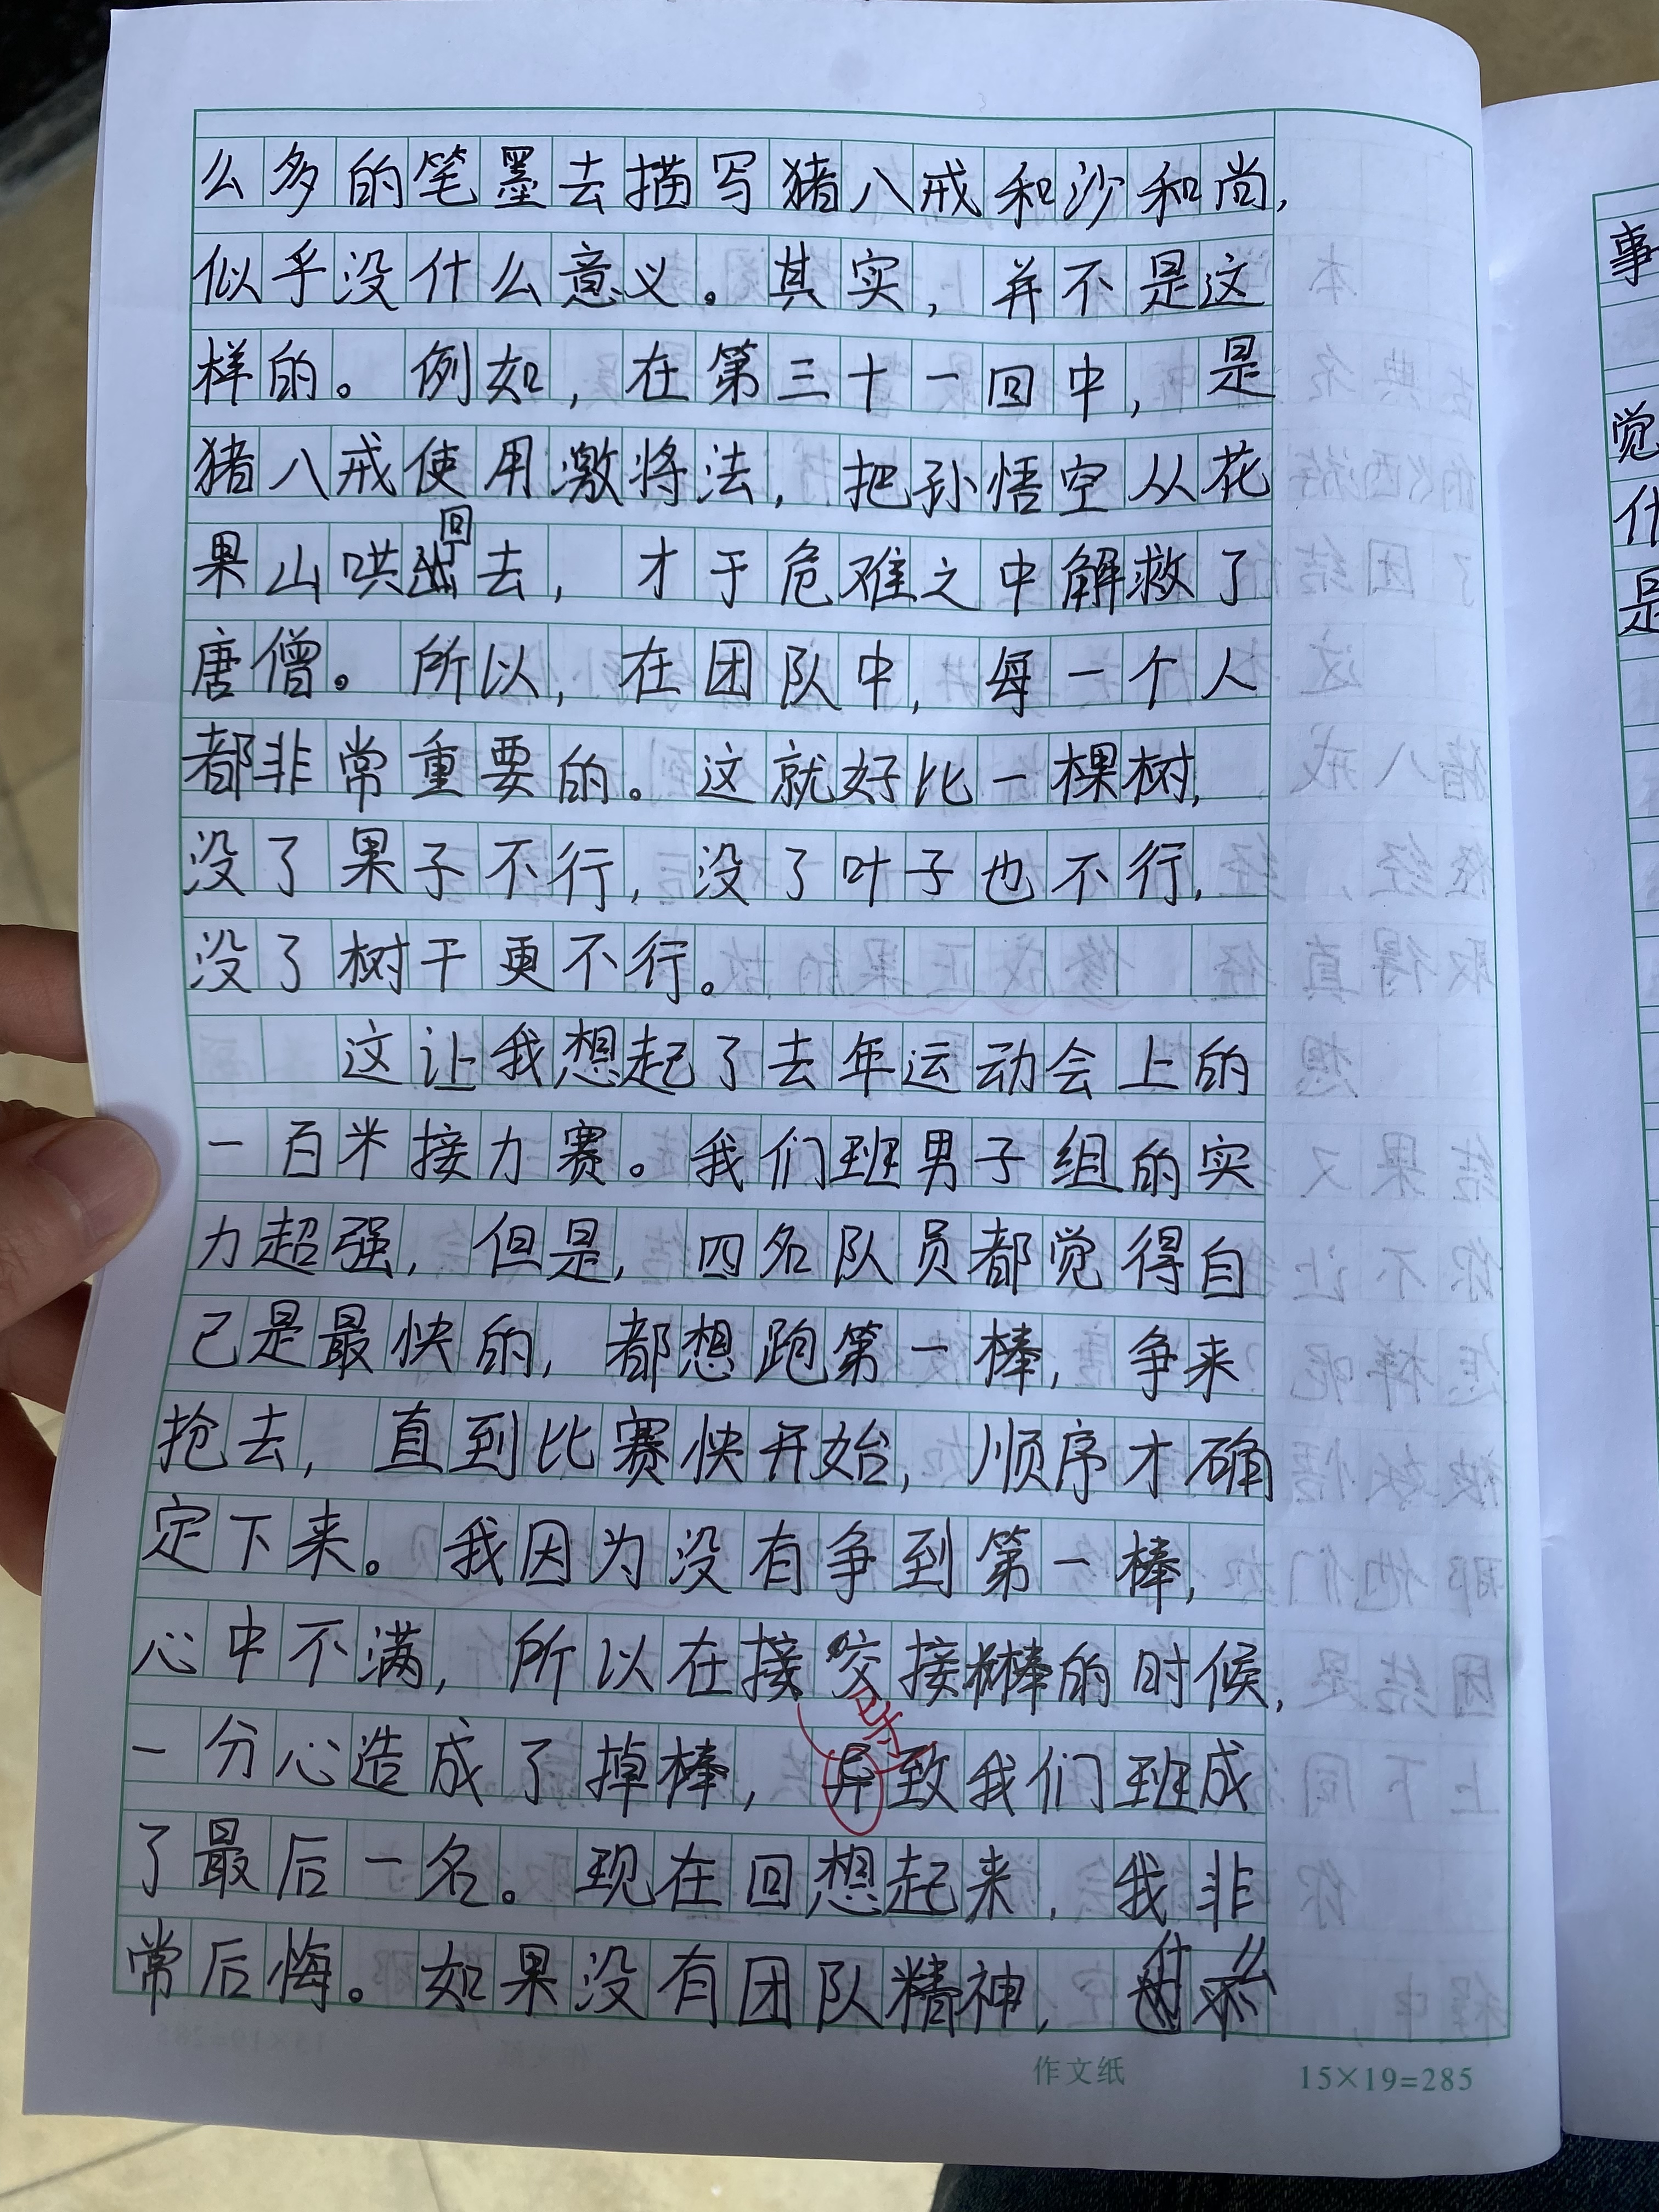 么多的笔墨去描写猪八戒和沙和尚,
似乎没什么意义。其实,并不是这
样的。例如,在第三十一回中,是
猪八戒使用激将法,把孙悟空从花
果山哄回去,才于危难之中解救了
唐僧。所以,在团队中,每一个人
都非常重要的。这就好比一棵树,
没了果子不行,没了叶子也不行,
没了树干更不行。
这让我想起了去年运动会上的
一百米接力赛。我们班男子组的实
力超强,但是,四名队员都觉得自
己是最快的,都想跑第一棒,争来
抢去,直到比赛快开始,顺序才确
定下来。我因为没有争到第一棒,
心中不满,所以在接交接棒的时候,
导
一分心造成了掉棒,导致我们班成
了最后一名。现在回想起来,我非
常后悔。如果没有团队精神,什么
作文纸 15×19=285
事
觉
什
是